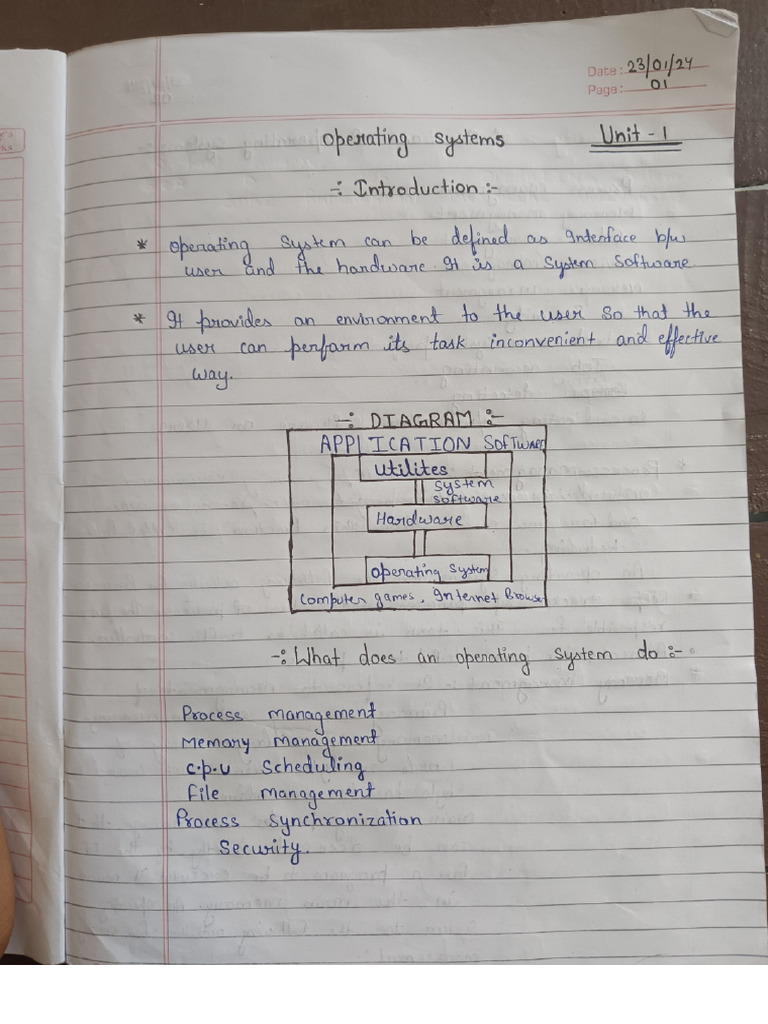 Date: 23/01/24
Page: 01
Operating Systems Unit - 1
-: Introduction :-
* Operating System can be defined as Interface b/w
user and the hardware. It is a System Software
* It provides an environment to the user so that the
user can perfarm its task inconvenient and effective
way.
-: DIAGRAM :-
APPLICATION SOFTWARE
Utilites
System
Software
Hardware
Operating System
Computer games, Internet Browser
-: What does an operating system do :-
Process management
Memory management
C.P.U Scheduling
File management
Process Synchronization
Security.